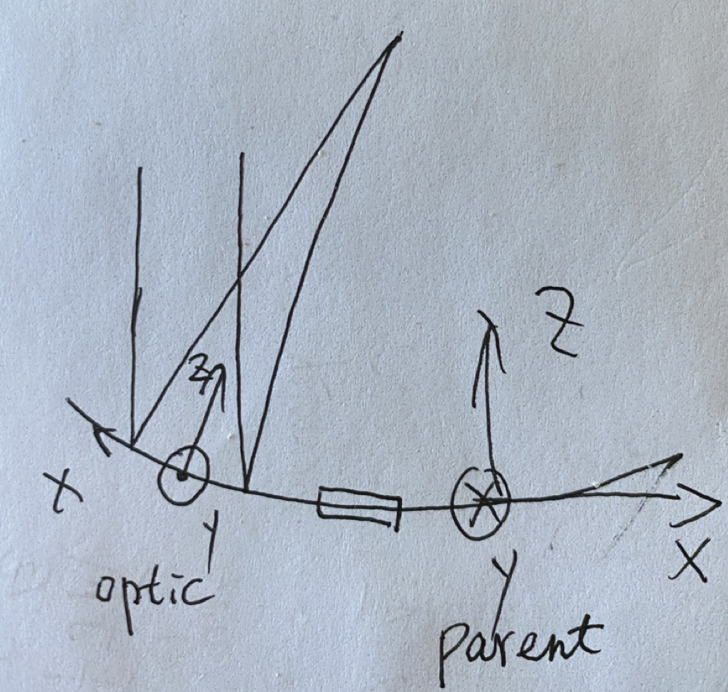 Z
Z
X
Y
optic
X
Y
parent